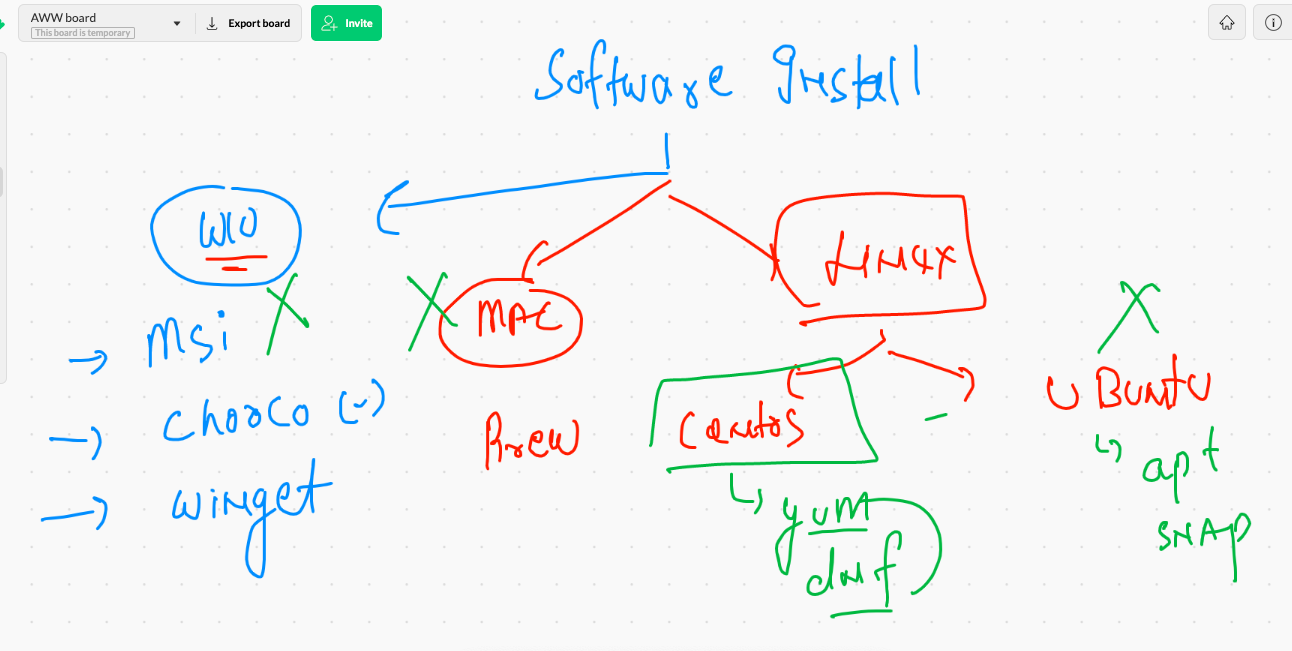 AWW board
This board is temporary
Export board
Invite
Software Install
W10
MAC
LINUX
Msi
Choco (-)
winget
Brew
Centos
yum
dnf
UBuntu
apt
SNAp